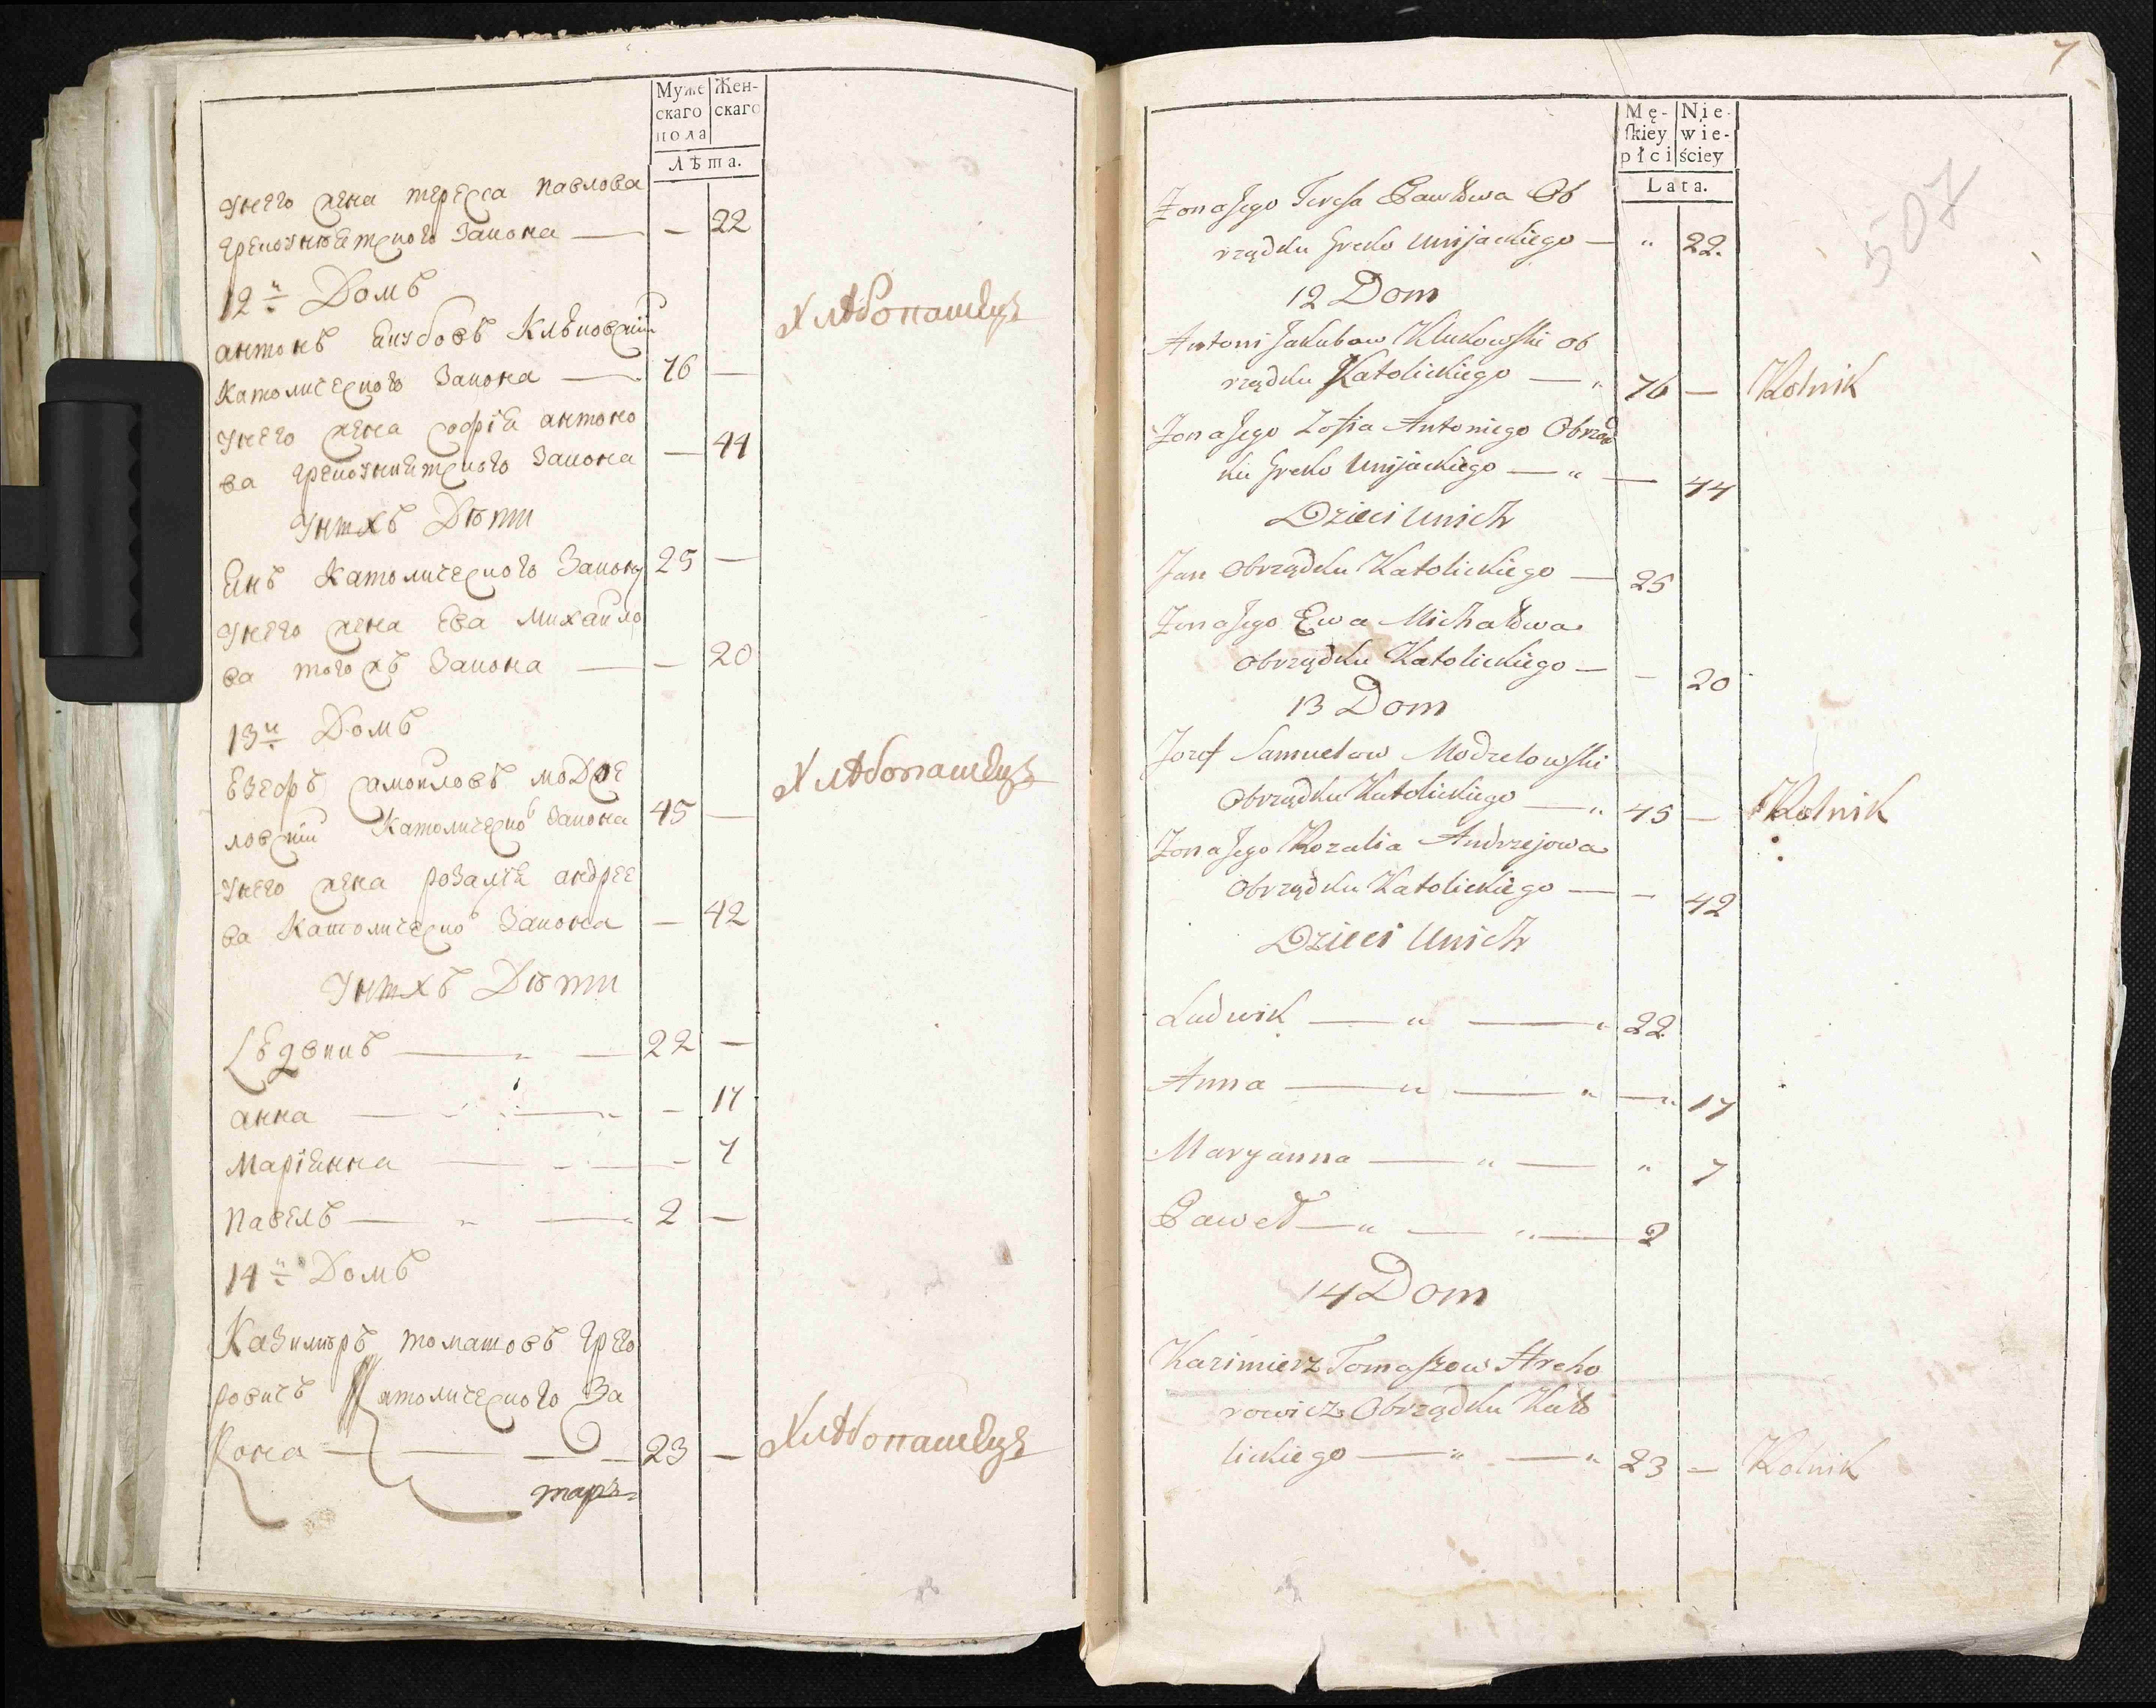 Муже Жен-
скаго скаго
пола
Лѣта.
Унего жена тереса павлова
грекоуниятского закона — — 22
12й Домъ
антонъ якубовъ Клюковский
католического закона — 76 — Хлѣбопашецъ
Унего жена софiя антоно
ва грекоуниятского закона — 44
Унихъ Дѣти
янъ католического закона 25 —
Унего жена ева михайло
ва тогожъ закона — — 20
13й Домъ
езефъ самойловъ модзе
ловский католическо закона 45 — Хлѣбопашецъ
Унего жена розалiя андрее
ва католическо закона — 42
Унихъ Дѣти
Людвикъ — „ — 22 —
анна — „ — „ — 17
марiянна — — 7
павелъ — „ — 2 —
14й Домъ
Казимиръ томашовъ грего
ровичъ католического за
кона — — — 23 — Хлѣбопашецъ
7
507
Mę- Nie-
ſkiey wie-
płci ściey
Lata.
Zona Jego Teresa Pawłowa Ob
rządku Greko Unijackiego — „ 22.
12 Dom
Antoni Jakubow Klukowski ob
rządku Katolickiego — „ 76 — Rolnik
Zona Jego Zofia Antoniego Obrząd
ku Greko Unijackiego — „ — 44
Dzieci Unich
Jan Obrządku Katolickiego — 25
Zona Jego Ewa Michałowa
Obrządku Katolickiego — – 20
13 Dom
Jozef Samuelow Modzelowski
Obrządku Katolickiego — „ 45 — Rolnik
Zona Jego Rozalia Andrzejowa
Obrządku Katolickiego — – 42
Dzieci Unich
Ludwik — „ — „ 22
Anna — „ — „ — „ 17
Maryanna — „ — „ 7
Paweł — „ — „ — 2
14 Dom
Kazimierz Tomaszow Hreho
rowicz Obrządku Kato
lickiego — „ — „ 23 — Rolnik